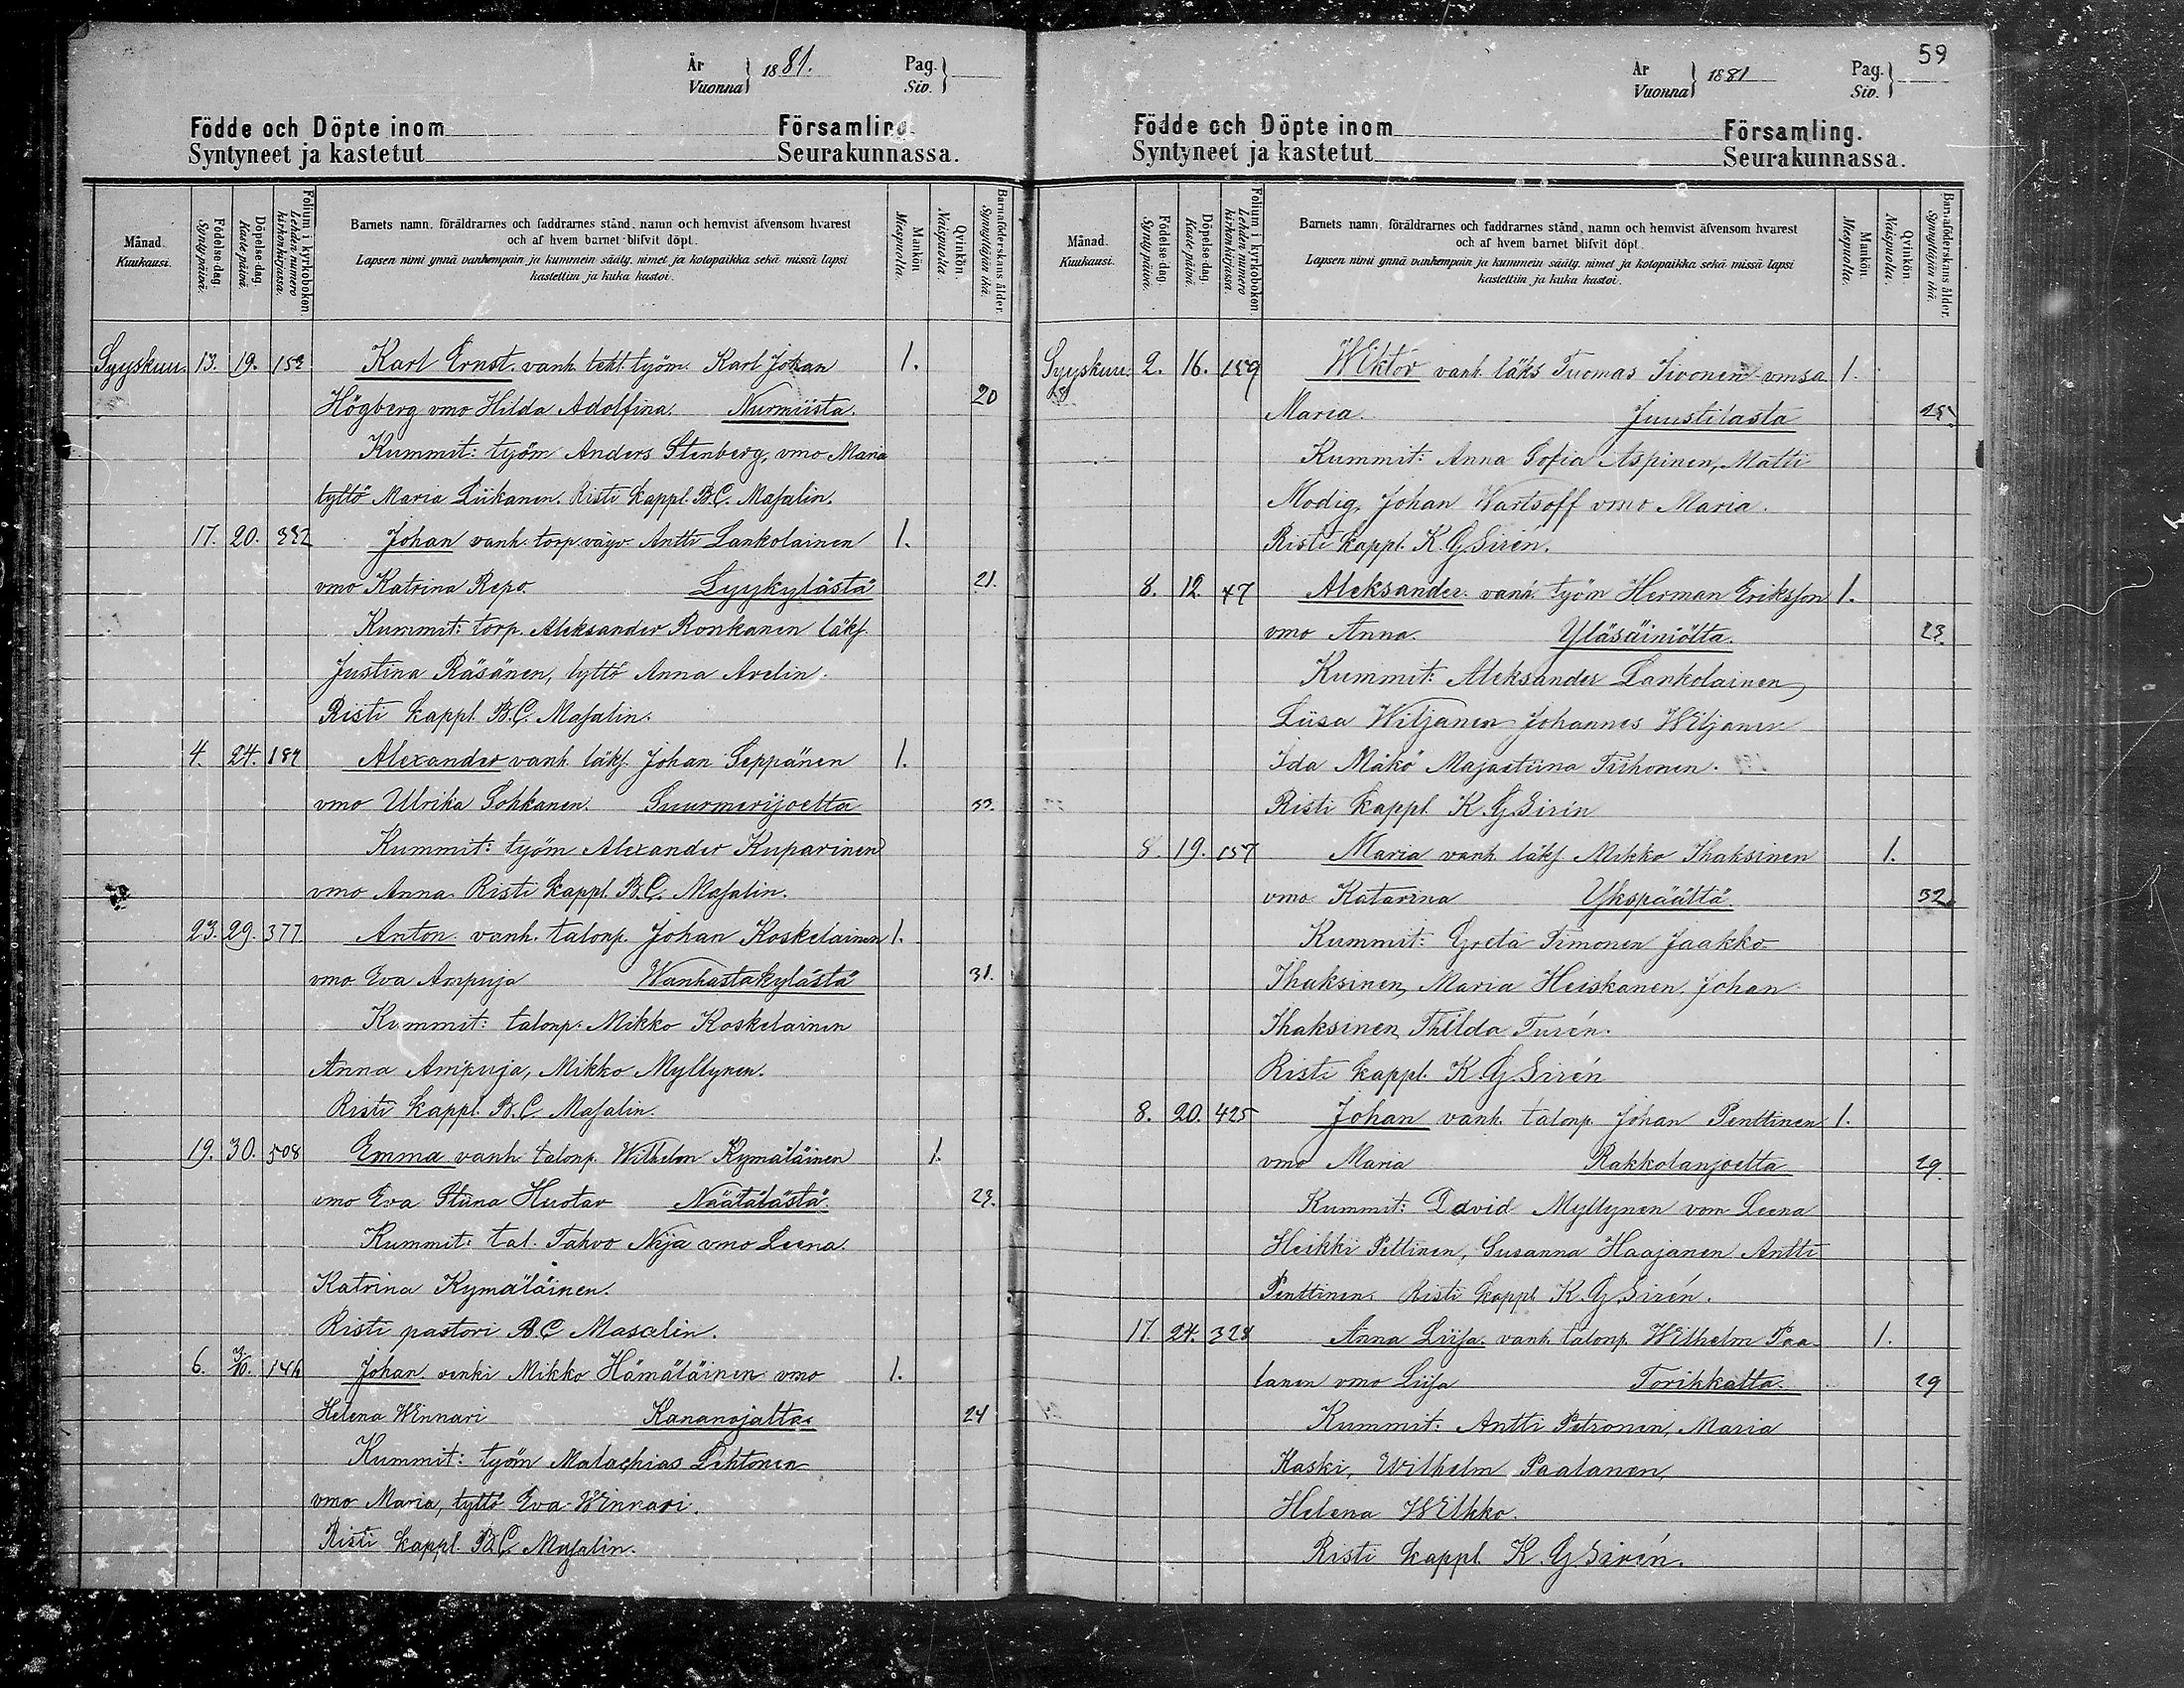 År
Vuonna
1881.
Pag.
Siv.
Födde och Döpte inom Församling.
Syntyneet ja kastetut Seurakunnassa.
Månad.
Kuukausi.
Födelse-dag.
Syntypäivä.
Döpelse-dag.
Kastepäivä.
Folium i kyrkoboken.
Lehden numero kirkonkirjassa.
Barnets namn, föräldrarnes och faddrarnes stånd, namn och hemvist äfvensom hvarest
och af hvem barnet blifvit döpt.
Lapsen nimi ynnä vanhempain ja kummein sääty, nimet ja kotopaikka sekä missä lapsi
kastettiin ja kuka kastoi.
Mankön.
Miespuolta.
Qvinkön.
Naispuolta.
Barnaföderskans ålder.
Synnyttäjän ikä.
Syyskuu. 13. 19. 152 Karl Ernst. vanh. teht. työm. Karl Johan 1.
Högberg vmo Hilda Adolfina. Nurmiista. 20
Kummit: työm Anders Stenberg, vmo Maria
tyttö Maria Liikanen. Risti kappl. B.C. Masalin.
17. 20. 332 Johan vanh. torp. vävy Antti Lankolainen 1.
vmo Katrina Repo. Lyykylästä 21.
Kummit: torp. Aleksander Ronkanen läks.
Justina Räsänen, tyttö Anna Avelin.
Risti kappl. B.C. Masalin.
4. 24. 187 Alexander vanh. läks. Johan Seppänen 1.
vmo Ulrika Sohkanen. Suurmerijoelta 33.
Kummit: työm Alexander Kuparinen
vmo Anna. Risti kappl. B.C. Masalin.
23. 29. 377. Anton. vanh. talonp. Johan Koskelainen 1.
vmo Eva Ampuja Wanhastakylästä 31.
Kummit: talonp. Mikko Koskelainen
Anna Ampuja, Mikko Myllynen.
Risti kappl. B.C. Masalin.
19. 30. 508 Emma vanh talonp. Wilhelm Kymäläinen 1.
vmo Eva Stiina Huotar Näätälästä. 23.
Kummit: tal. Tahvo Nyja vmo Leena.
Katrina Kymäläinen.
Risti pastori B.C Masalin.
6. 3/10. 146 Johan. renki Mikko Hämäläinen vmo 1.
Helena Winnari Kananojalta. 24
Kummit: työm Malachias Lehtonen
vmo Maria, tyttö Eva Winnari.
Risti kappl. B.C. Masalin.
59
År
Vuonna
1881
Pag.
Siv.
Födde och Döpte inom Församling.
Syntyneet ja kastetut Seurakunnassa.
Månad.
Kuukausi.
Födelse-dag.
Syntypäivä.
Döpelse-dag.
Kastepäivä.
Folium i kyrkoboken.
Lehden numero kirkonkirjassa.
Barnets namn, föräldrarnes och faddrarnes stånd, namn och hemvist äfvensom hvarest
och af hvem barnet blifvit döpt.
Lapsen nimi ynnä vanhempain ja kummein sääty, nimet ja kotopaikka sekä missä lapsi
kastettiin ja kuka kastoi.
Mankön.
Miespuolta.
Qvinkön.
Naispuolta.
Barnaföderskans ålder.
Synnyttäjän ikä.
Syyskuu. 2. 16. 159 Wiktor vanh. läks Tuomas Iivonen vmsa 1.
Maria. Juustilasta 25.
Kummit: Anna Sofia Aspinen, Matti
Modig, Johan Wartsoff vmo Maria.
Risti kappl. K.G Sirén.
8. 12. 47 Aleksander. vanh. työm Herman Eriksson 1.
vmo Anna. Yläsäiniöltä. 23.
Kummit: Aleksander Lankolainen,
Liisa Wiljanen Johannes Wiljanen
Ida Mäkö Majastiina Tiihonen.
Risti kappl. K.G. Sirén
8. 19. 157 Maria vanh. läks Mikko Ihaksinen 1.
vmo Katarina Ykspäältä 32.
Kummit: Greta Timonen Jaakko
Ihaksinen, Maria Heiskanen. Johan
Ihaksinen, Thilda Turén.
Risti kappl. K.G. Sirén
8. 20. 425 Johan vanh. talonp. Johan Penttinen 1.
vmo Maria Rakkolanjoelta 29.
Kummit: David Myllynen vom Leena
Heikki Pettinen, Susanna Haajanen Antti
Penttinen. Risti kappl K.G. Sirén.
17. 24. 328 Anna Liisa. vanh. talonp. Wilhelm Paa- 1.
lanen vmo Liisa Torikkalta. 29
Kummit: Antti Petronen, Maria
Kaski, Wilhelm Paalanen,
Helena Wilkko.
Risti kappl. K.G. Sirén.